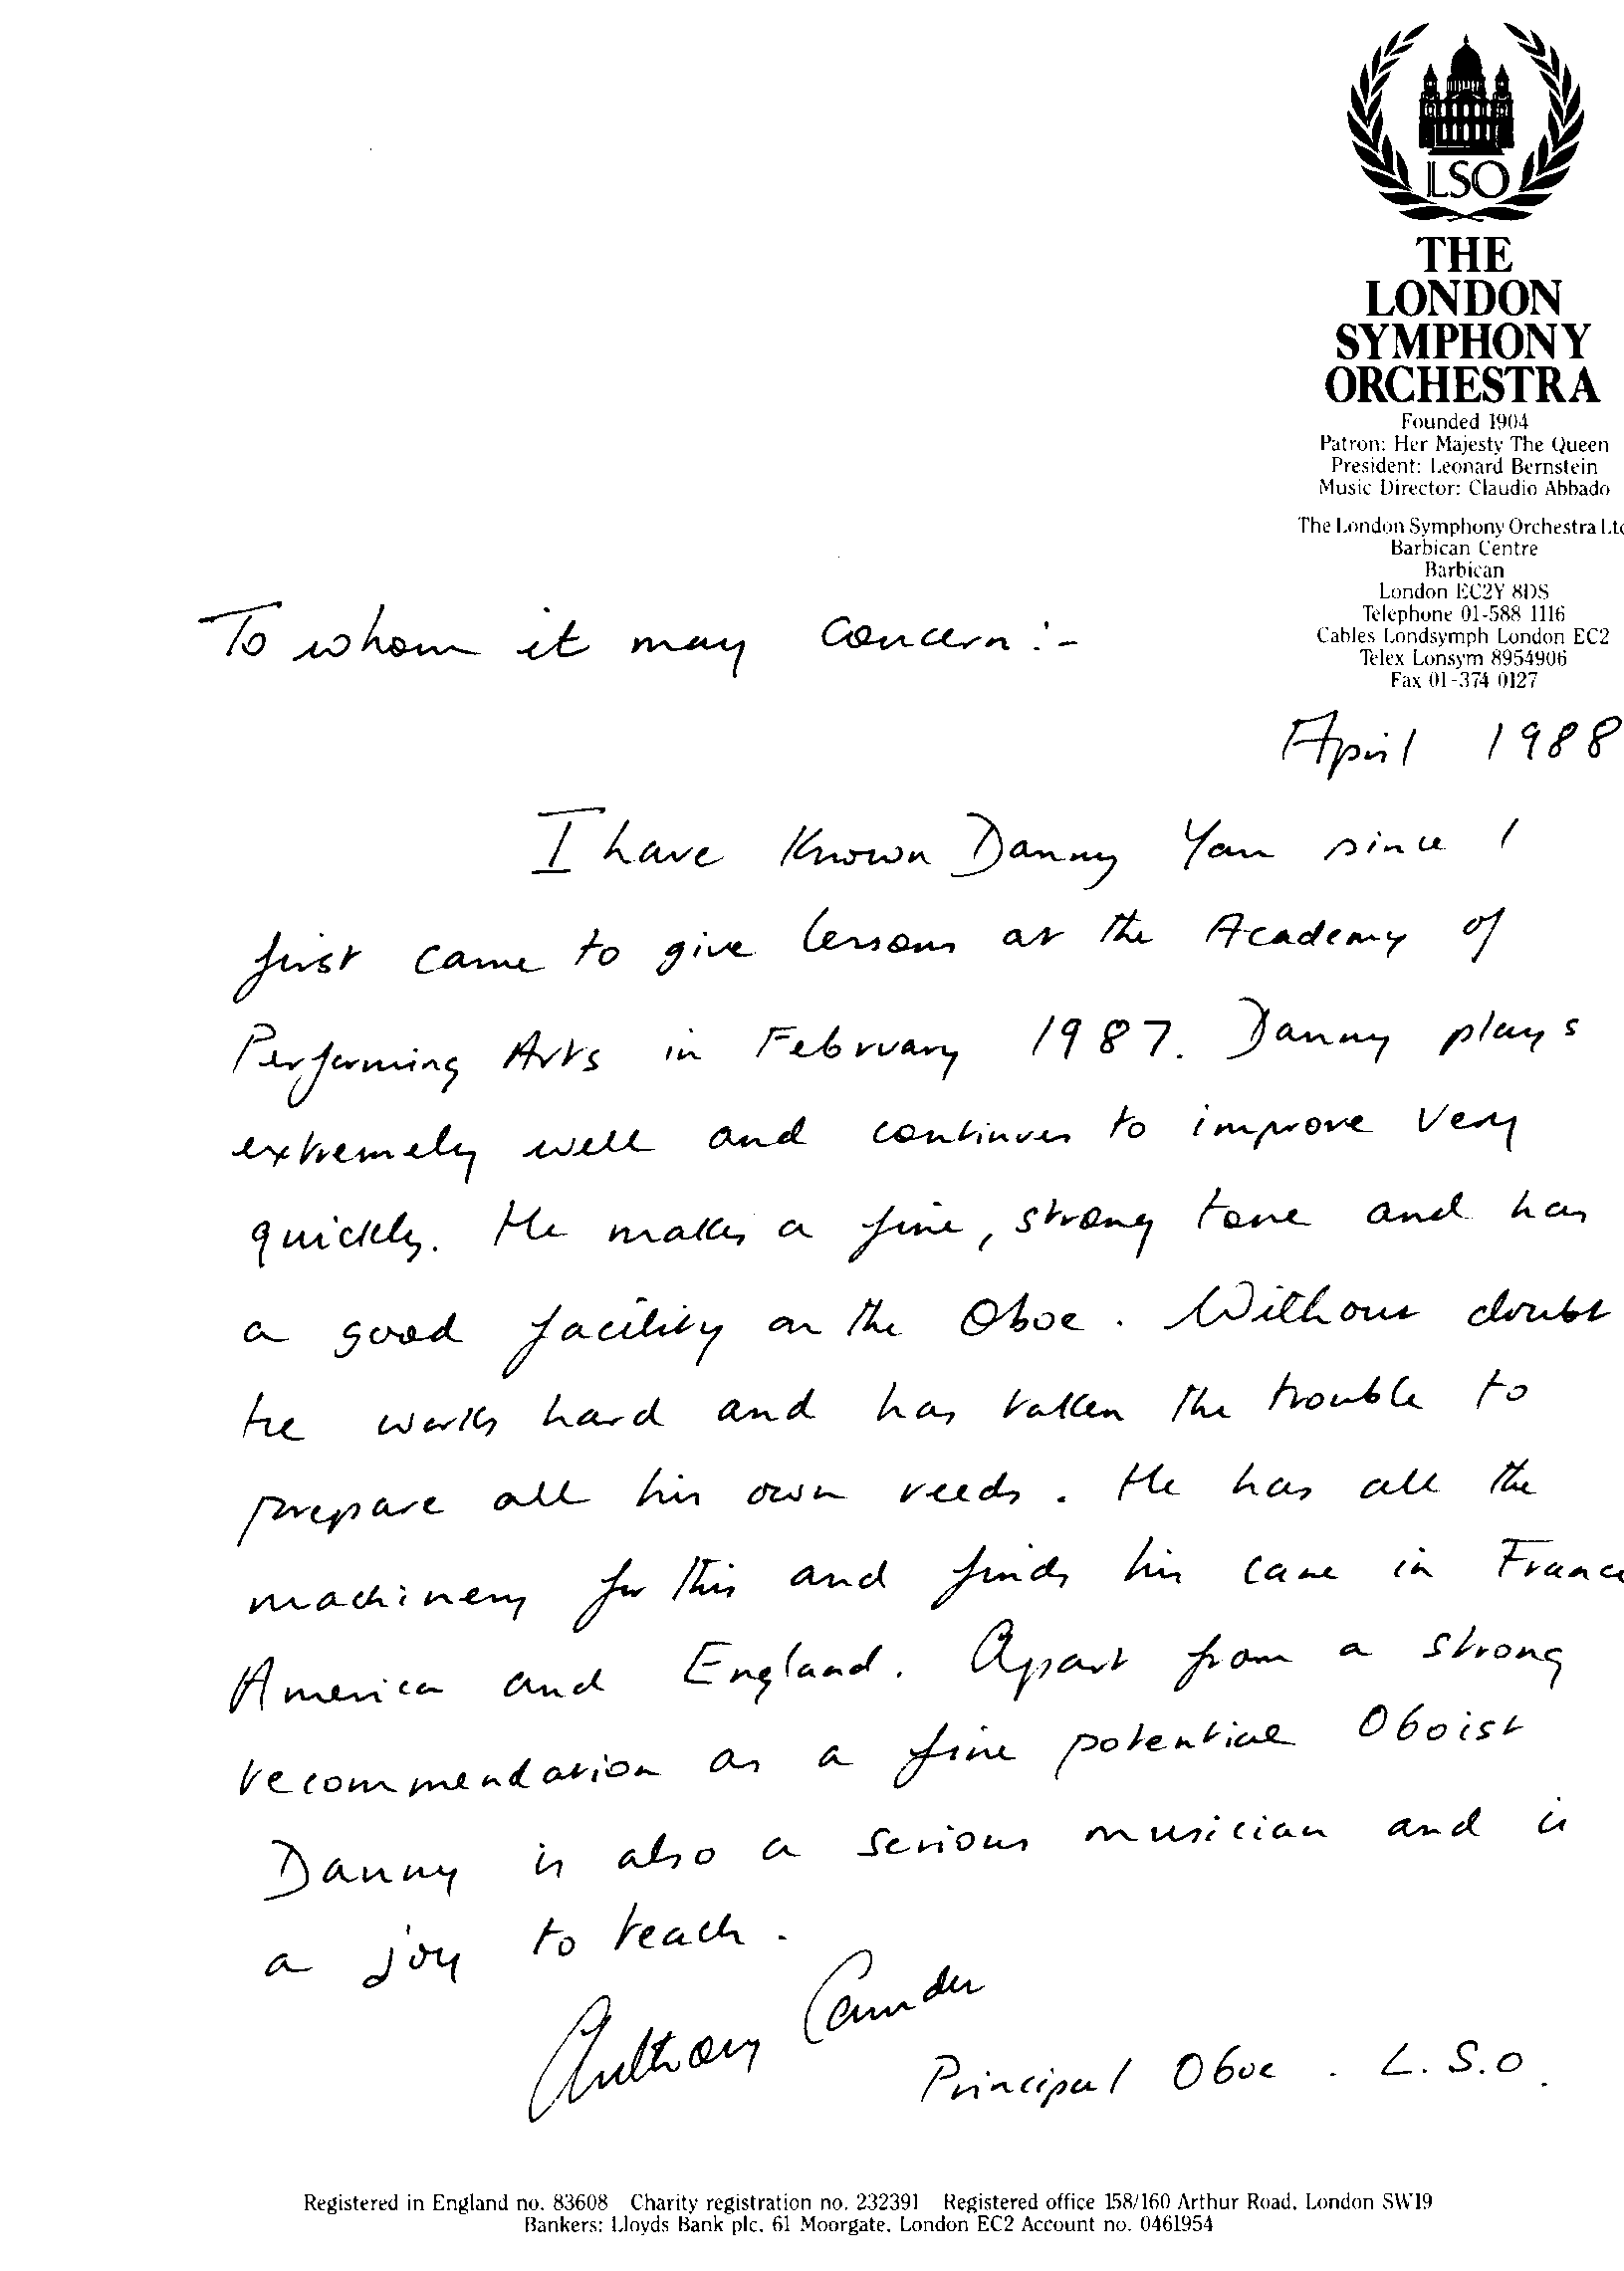 LSO
THE
LONDON
SYMPHONY
ORCHESTRA
Founded 1904
Patron: Her Majesty The Queen
President: Leonard Bernstein
Music Director: Claudio Abbado
The London Symphony Orchestra Ltd
Barbican Centre
Barbican
London EC2Y 8DS
Telephone 01-588 1116
Cables Londsymph London EC2
Telex Lonsym 8954906
Fax 01-374 0127
To whom it may concern:-
April 1988
I have known Danny Yau since I
first came to give lessons at the Academy of
Performing Arts in February 1987. Danny plays
extremely well and continues to improve very
quickly. He makes a fine, strong tone and has
a good facility on the Oboe. Without doubt
he works hard and has taken the trouble to
prepare all his own reeds. He has all the
machinery for this and finds his cane in France
America and England. Apart from a strong
recommendation as a fine potential Oboist
Danny is also a serious musician and is
a joy to teach.
Anthony Camden
Principal Oboe. L.S.O.
Registered in England no. 83608 Charity registration no. 232391 Registered office 158/160 Arthur Road, London SW19
Bankers: Lloyds Bank plc, 61 Moorgate, London EC2 Account no. 0461954